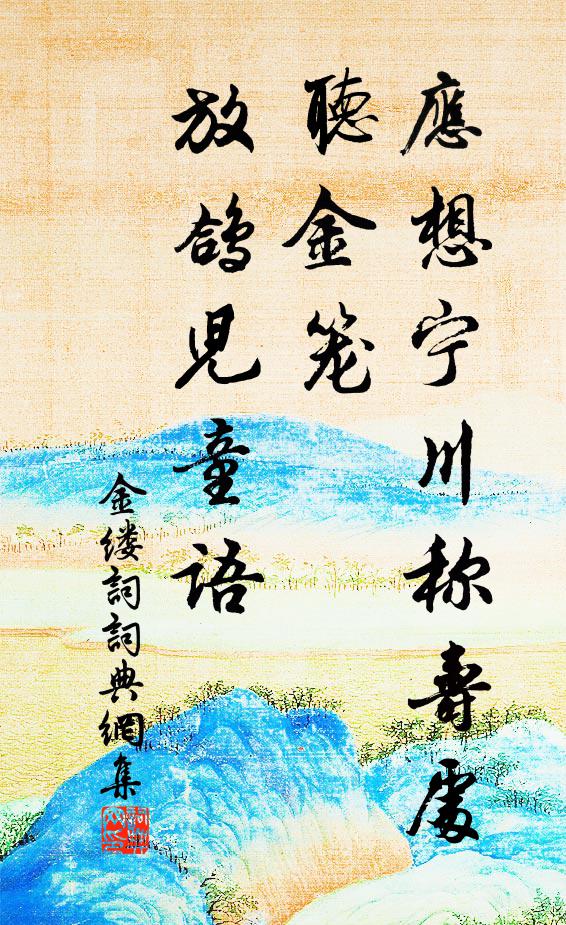 應想宁川称壽處
聽金笼
放鴿兒童语
金缕詞詞典網集